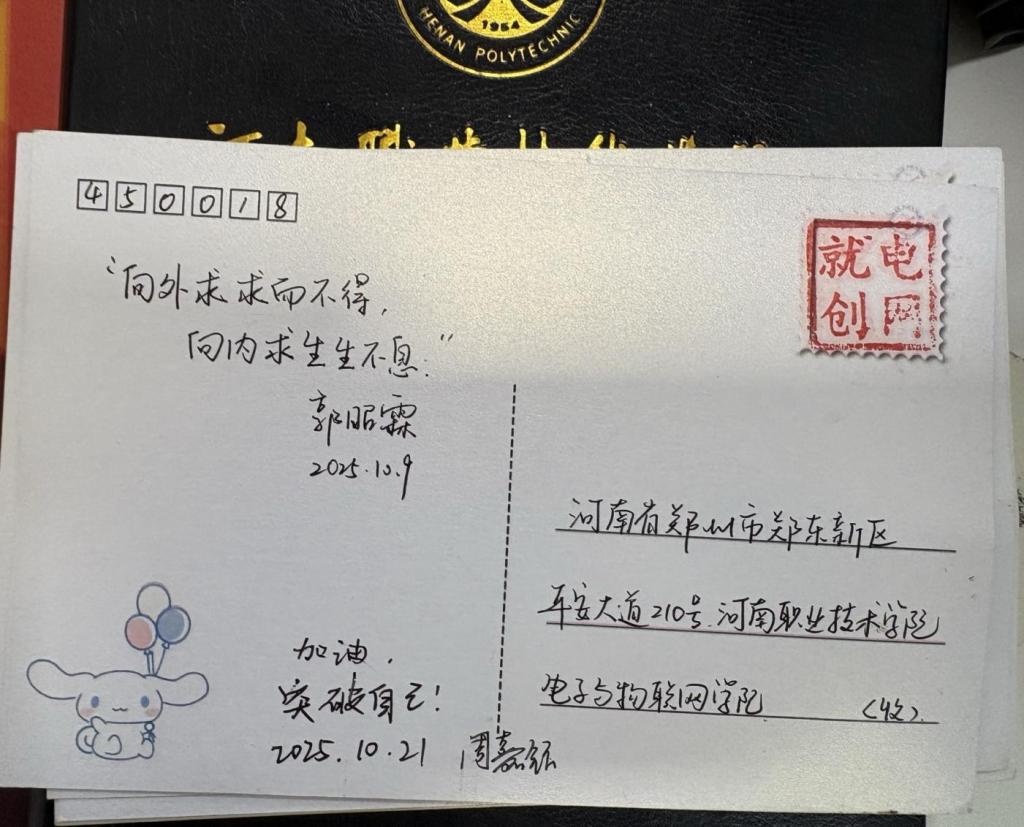 1954
HENAN POLYTECHNIC
450018
就电
创网
“向外求求而不得，
向内求生生不息.”
郭昭霖
2025.10.9
河南省郑州市郑东新区
平安大道210号.河南职业技术学院
电子与物联网学院 （收）
加油，
突破自己！
2025.10.21 周嘉钰